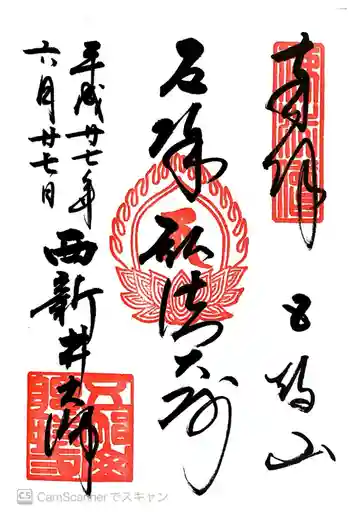 奉拝
五智山
厄除
弘法大師
西新井大師
平成廿七年
六月廿七日
CS CamScannerでスキャン